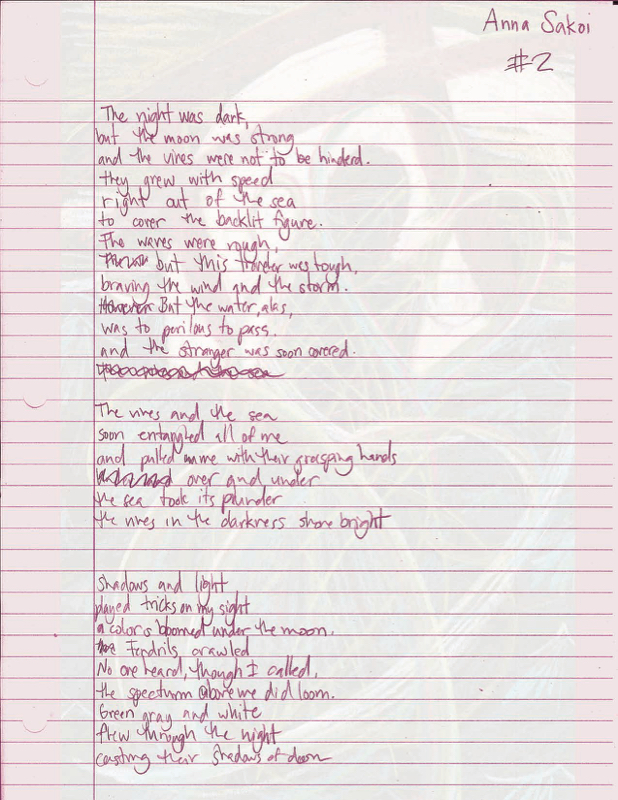 Anna Sakoi
#2
The night was dark,
but the moon was strong
and the vines were not to be hinderd.
they grew with speed
right out of the sea
to cover the backlit figure.
The waves were rough,
but this traveler was tough,
braving the wind and the storm.
However But the water, alas,
was to perilous to pass.
and the stranger was soon covered.
The vines and the sea
soon entangled all of me
and pulled me with their grasping hands
over and under
the sea took its plunder
the vines in the darkness shone bright
Shadows and light
played tricks on my sight
a colors bloomed under the moon.
Tendrils crawled
No one heard, though I called,
the specturm above me did loom.
Green gray and white
flew through the night
casting their shadows of doom